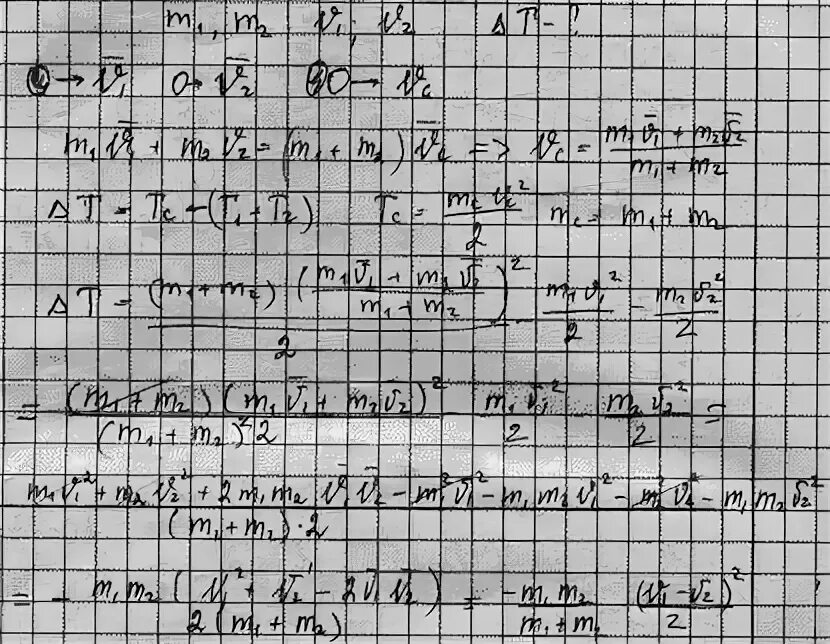 m₁, m₂ 𝑣₁, 𝑣₂ ΔT - ?
① → v̄₁ 0→ v̄₂ ⓪0 → v_c
m₁ v̄₁ + m₂ v̄₂ = (m₁ + m₂) v̄_c => v_c = (m₁ v̄₁ + m₂ v̄₂)/(m₁ + m₂)
ΔT = T_c - (T₁ + T₂) T_c = (m_c v_c²)/2 m_c = m₁ + m₂
ΔT = ((m₁ + m₂) ((m₁ v̄₁ + m₂ v̄₂)/(m₁ + m₂))²)/2 - (m₁ v₁²)/2 - (m₂ v₂²)/2
= ((m₁ + m₂)(m₁ v̄₁ + m₂ v̄₂)²)/((m₁ + m₂)² 2) - (m₁ v̄₁²)/2 - (m₂ v̄₂²)/2 =
(m₁ v₁² + m₂ v₂² + 2 m₁ m₂ v̄₁ v̄₂ - m₁² v₁² - m₁ m₂ v₁² - m₂² v₂² - m₁ m₂ v₂²)/((m₁ + m₂) · 2)
= - (m₁ m₂ (v₁² + v₂² - 2 v̄₁ v̄₂))/(2 (m₁ + m₂)) = (-m₁ m₂)/(m₁ + m₂) (v̄₁ - v̄₂)²/2